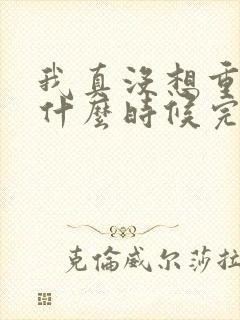 我真没想重
什麼時候完
克倫威尔莎拉